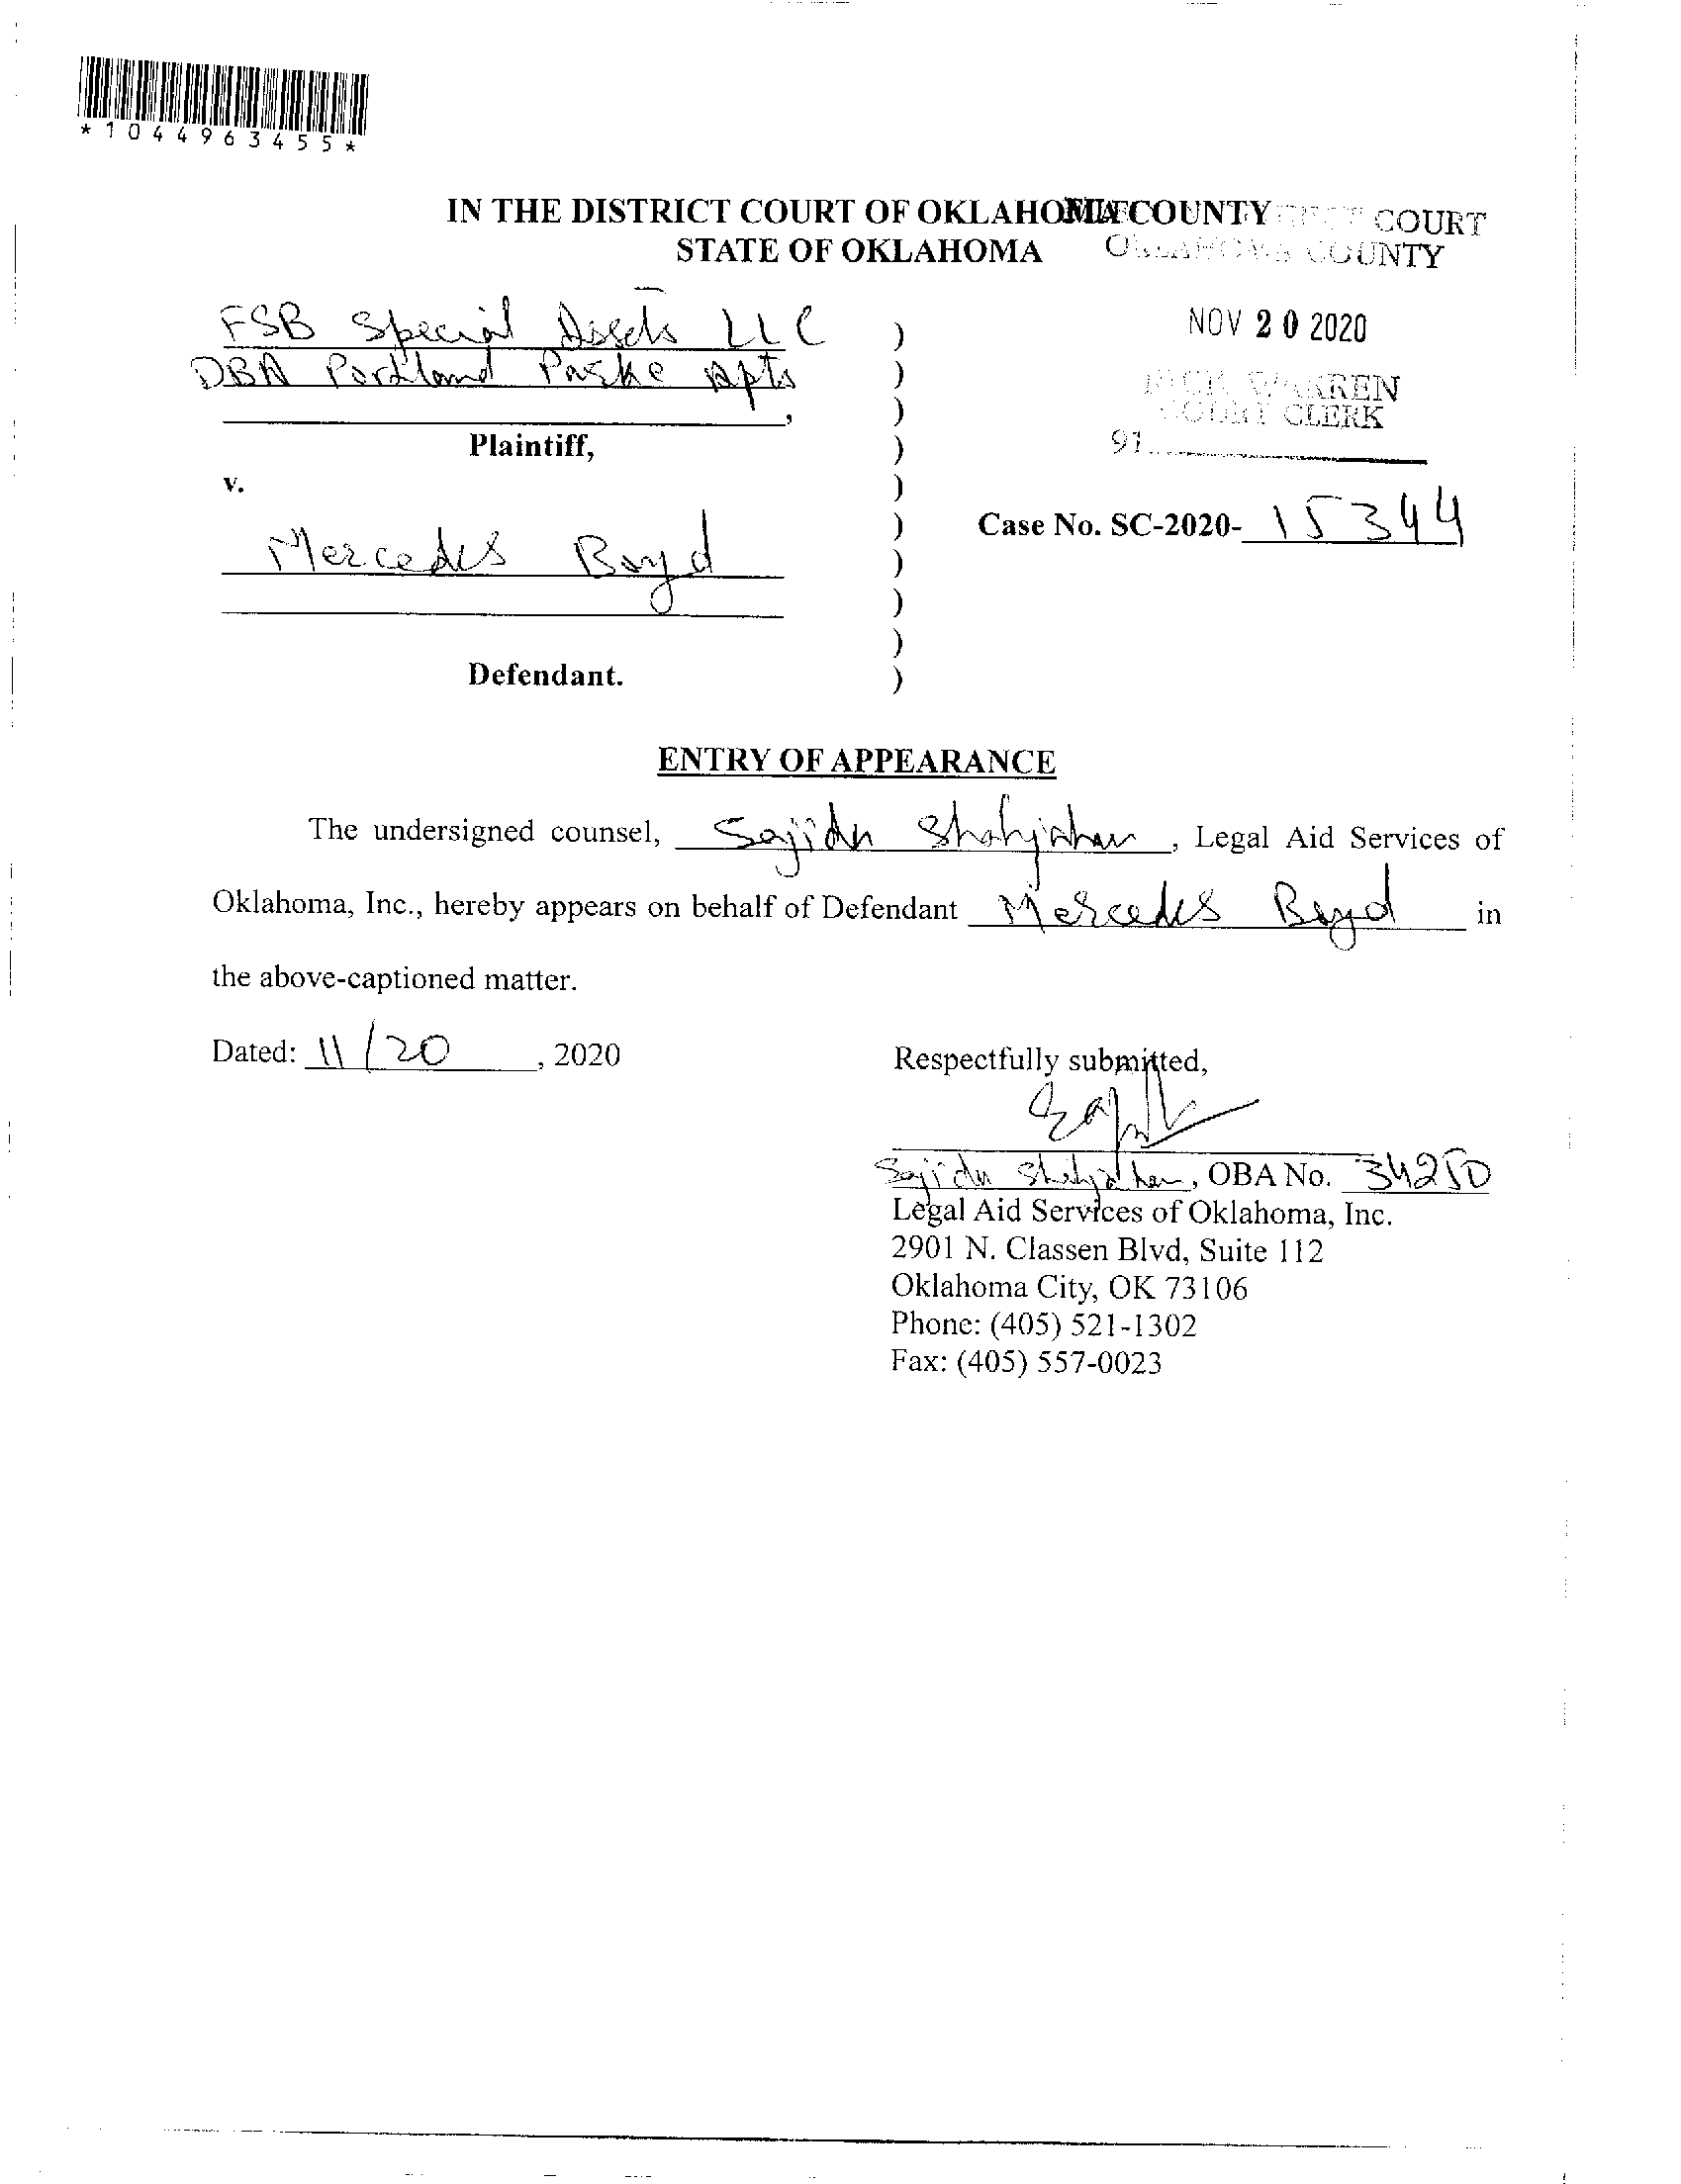 *1044963455*
IN THE DISTRICT COURT OF OKLAHOMA COUNTY
STATE OF OKLAHOMA
COURT
OKLAHOMA COUNTY
NOV 20 2020
RICK WARREN
COURT CLERK
91
FSB Special Assets LLC )
DBA Portland Parke Apts )
, )
Plaintiff, )
v. )
Case No. SC-2020- 15344 )
Mercedes Boyd )
)
)
Defendant. )
ENTRY OF APPEARANCE
The undersigned counsel, Sajida Shahjahan, Legal Aid Services of
Oklahoma, Inc., hereby appears on behalf of Defendant Mercedes Boyd in
the above-captioned matter.
Dated: 11/20, 2020
Respectfully submitted,
Sajida Shahjahan, OBA No. 34250
Legal Aid Services of Oklahoma, Inc.
2901 N. Classen Blvd, Suite 112
Oklahoma City, OK 73106
Phone: (405) 521-1302
Fax: (405) 557-0023